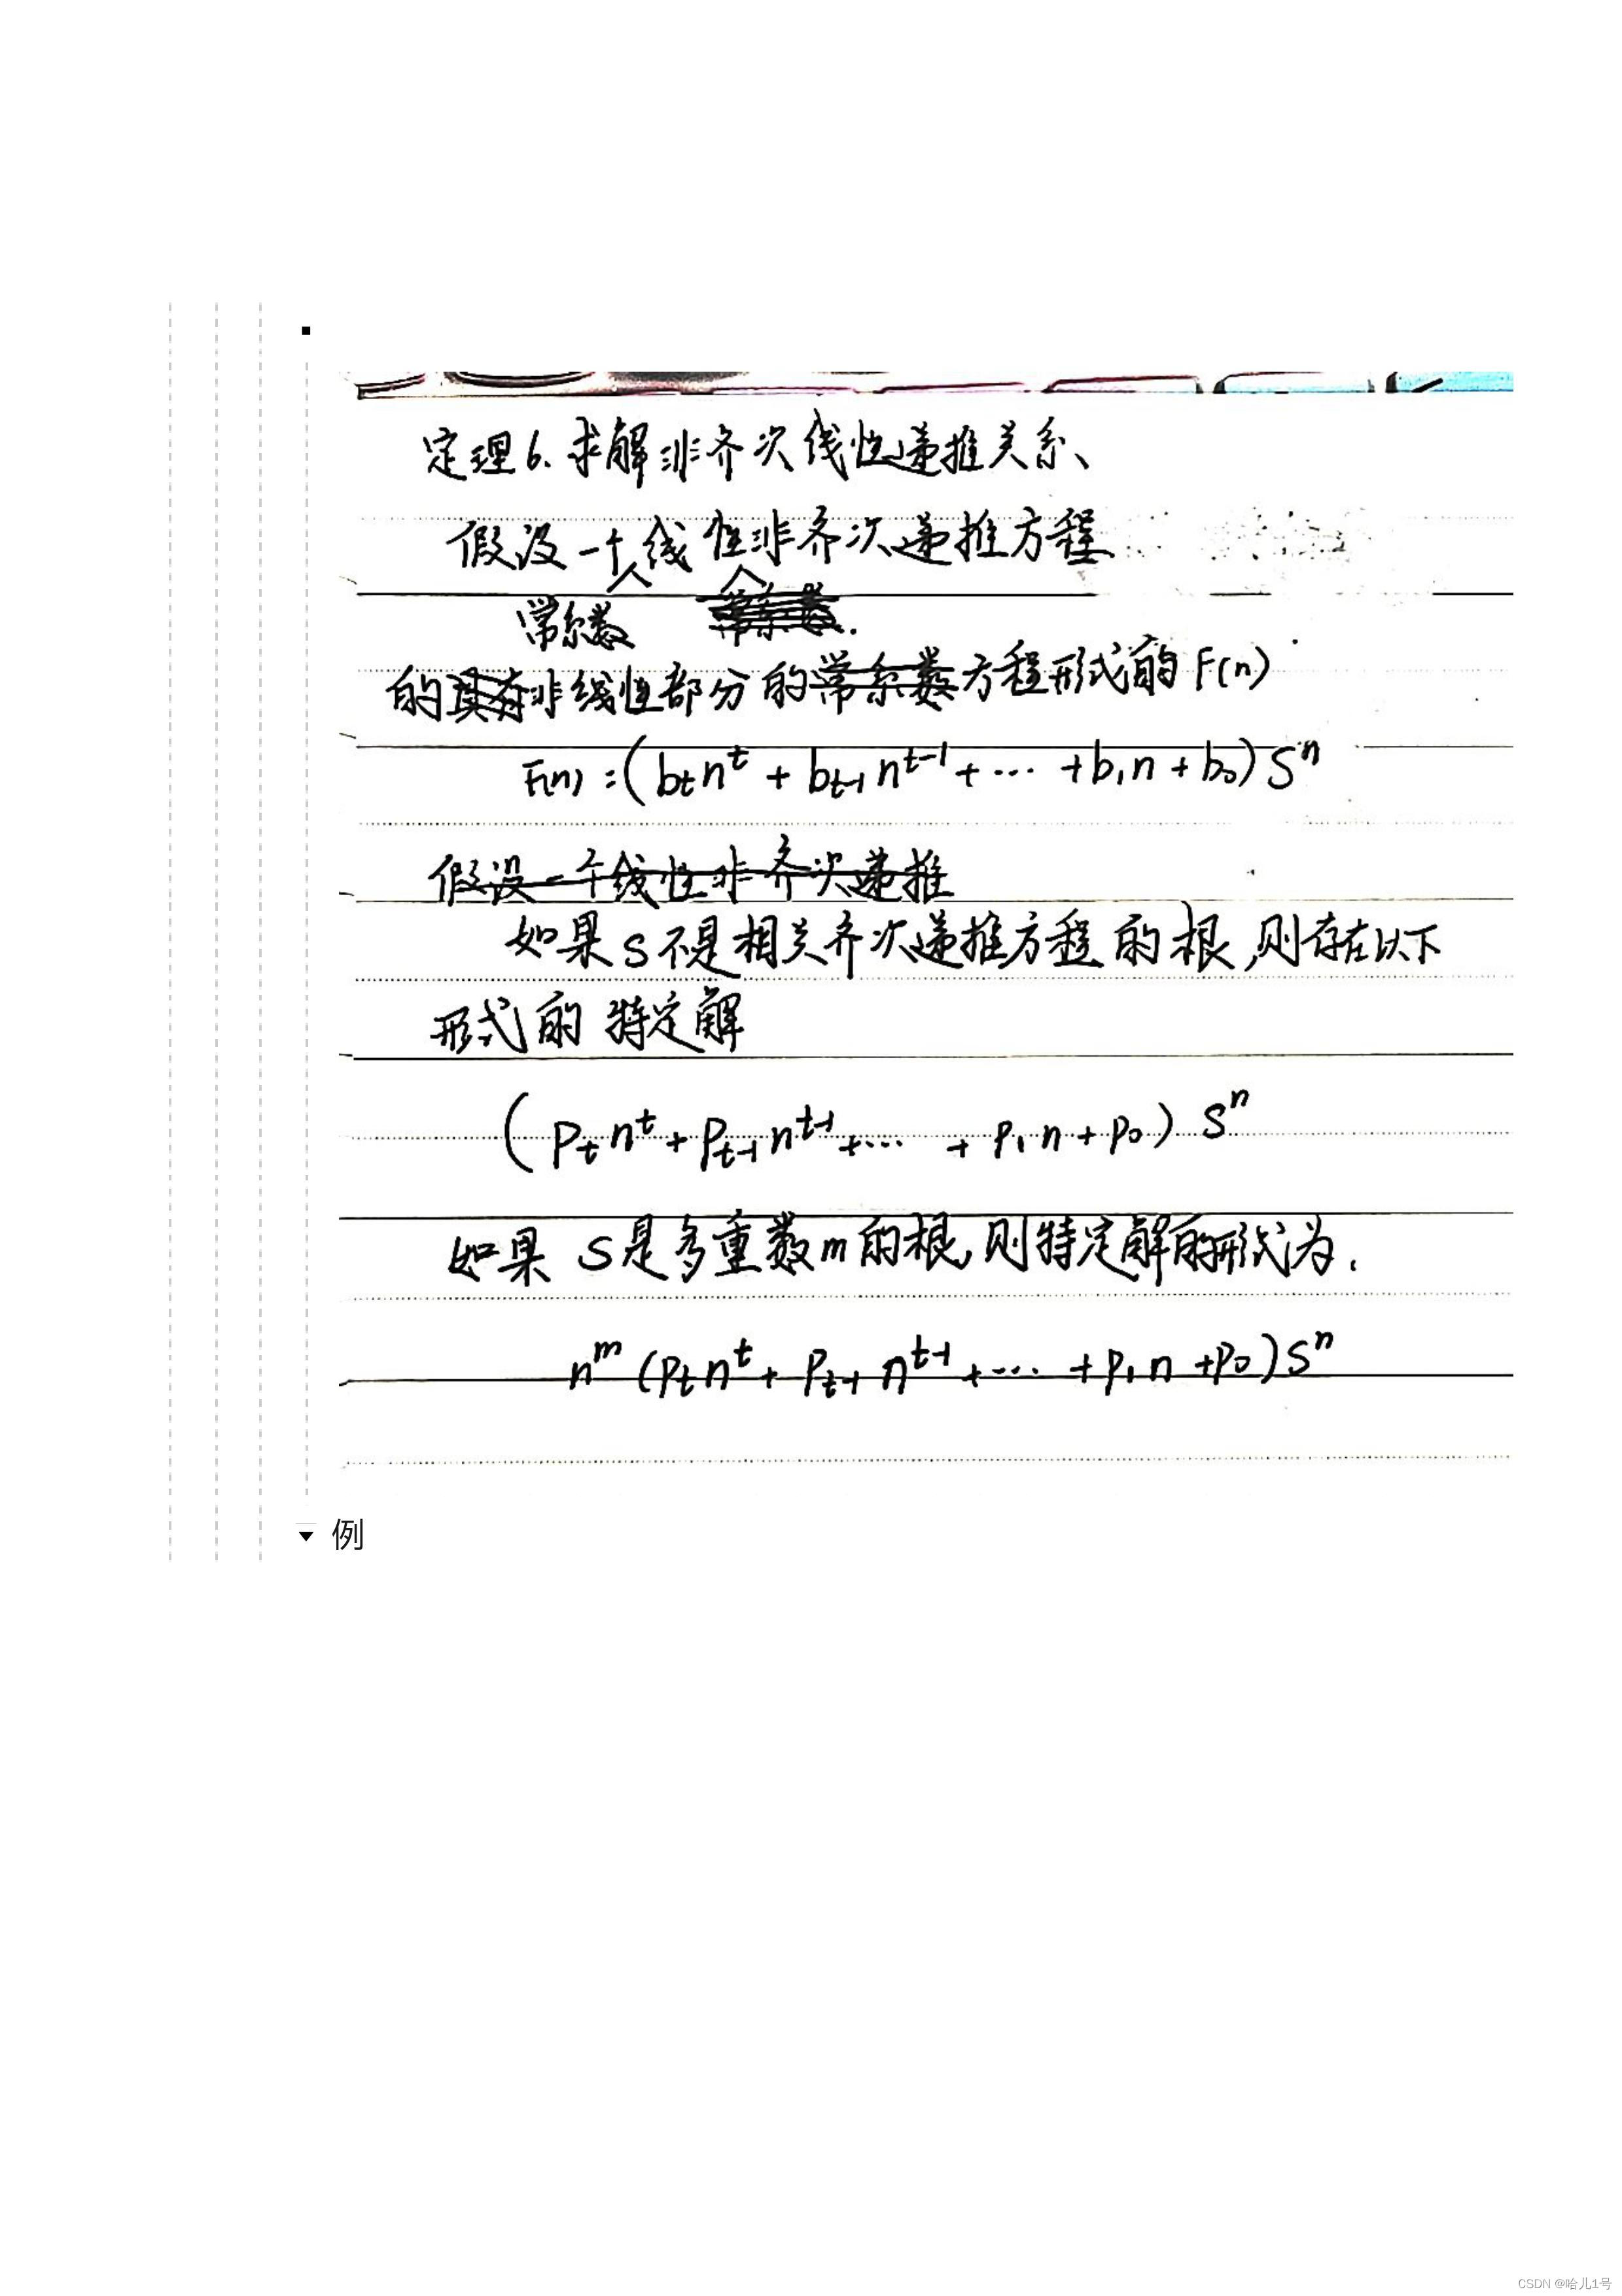 定理6.求解非齐次线性递推关系、
假设一个线性非齐次递推方程
常系数 常系数.
的具有非线性部分的常系数方程形式的F(n)
F(n)=(b_t n^t + b_{t-1} n^{t-1} + ... + b_1 n + b_0) S^n
假设一个线性非齐次递推
如果S不是相关齐次递推方程的根,则存在以下
形式的特定解
(p_t n^t + p_{t-1} n^{t-1} + ... + p_1 n + p_0) S^n
如果S是多重数m的根,则特定解的形式为.
n^m (p_t n^t + p_{t-1} n^{t-1} + ... + p_1 n + p_0) S^n
例
CSDN @哈儿1号